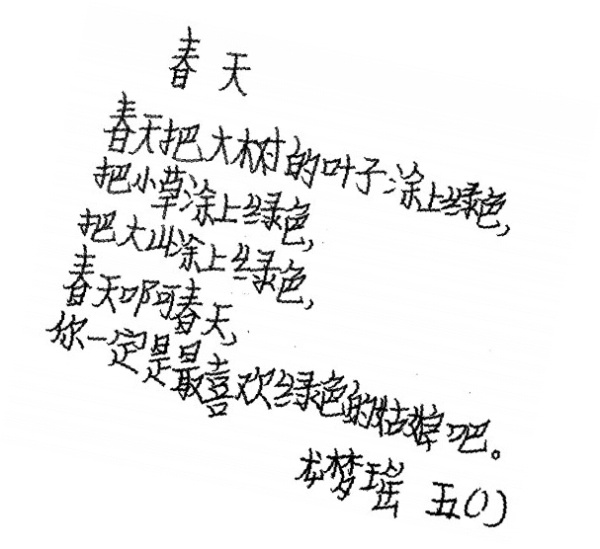 春天
春天把大树的叶子涂上绿色,
把小草涂上绿色,
把大山涂上绿色,
春天啊春天,
你一定是最喜欢绿色的姑娘吧。
龙梦瑶 五()